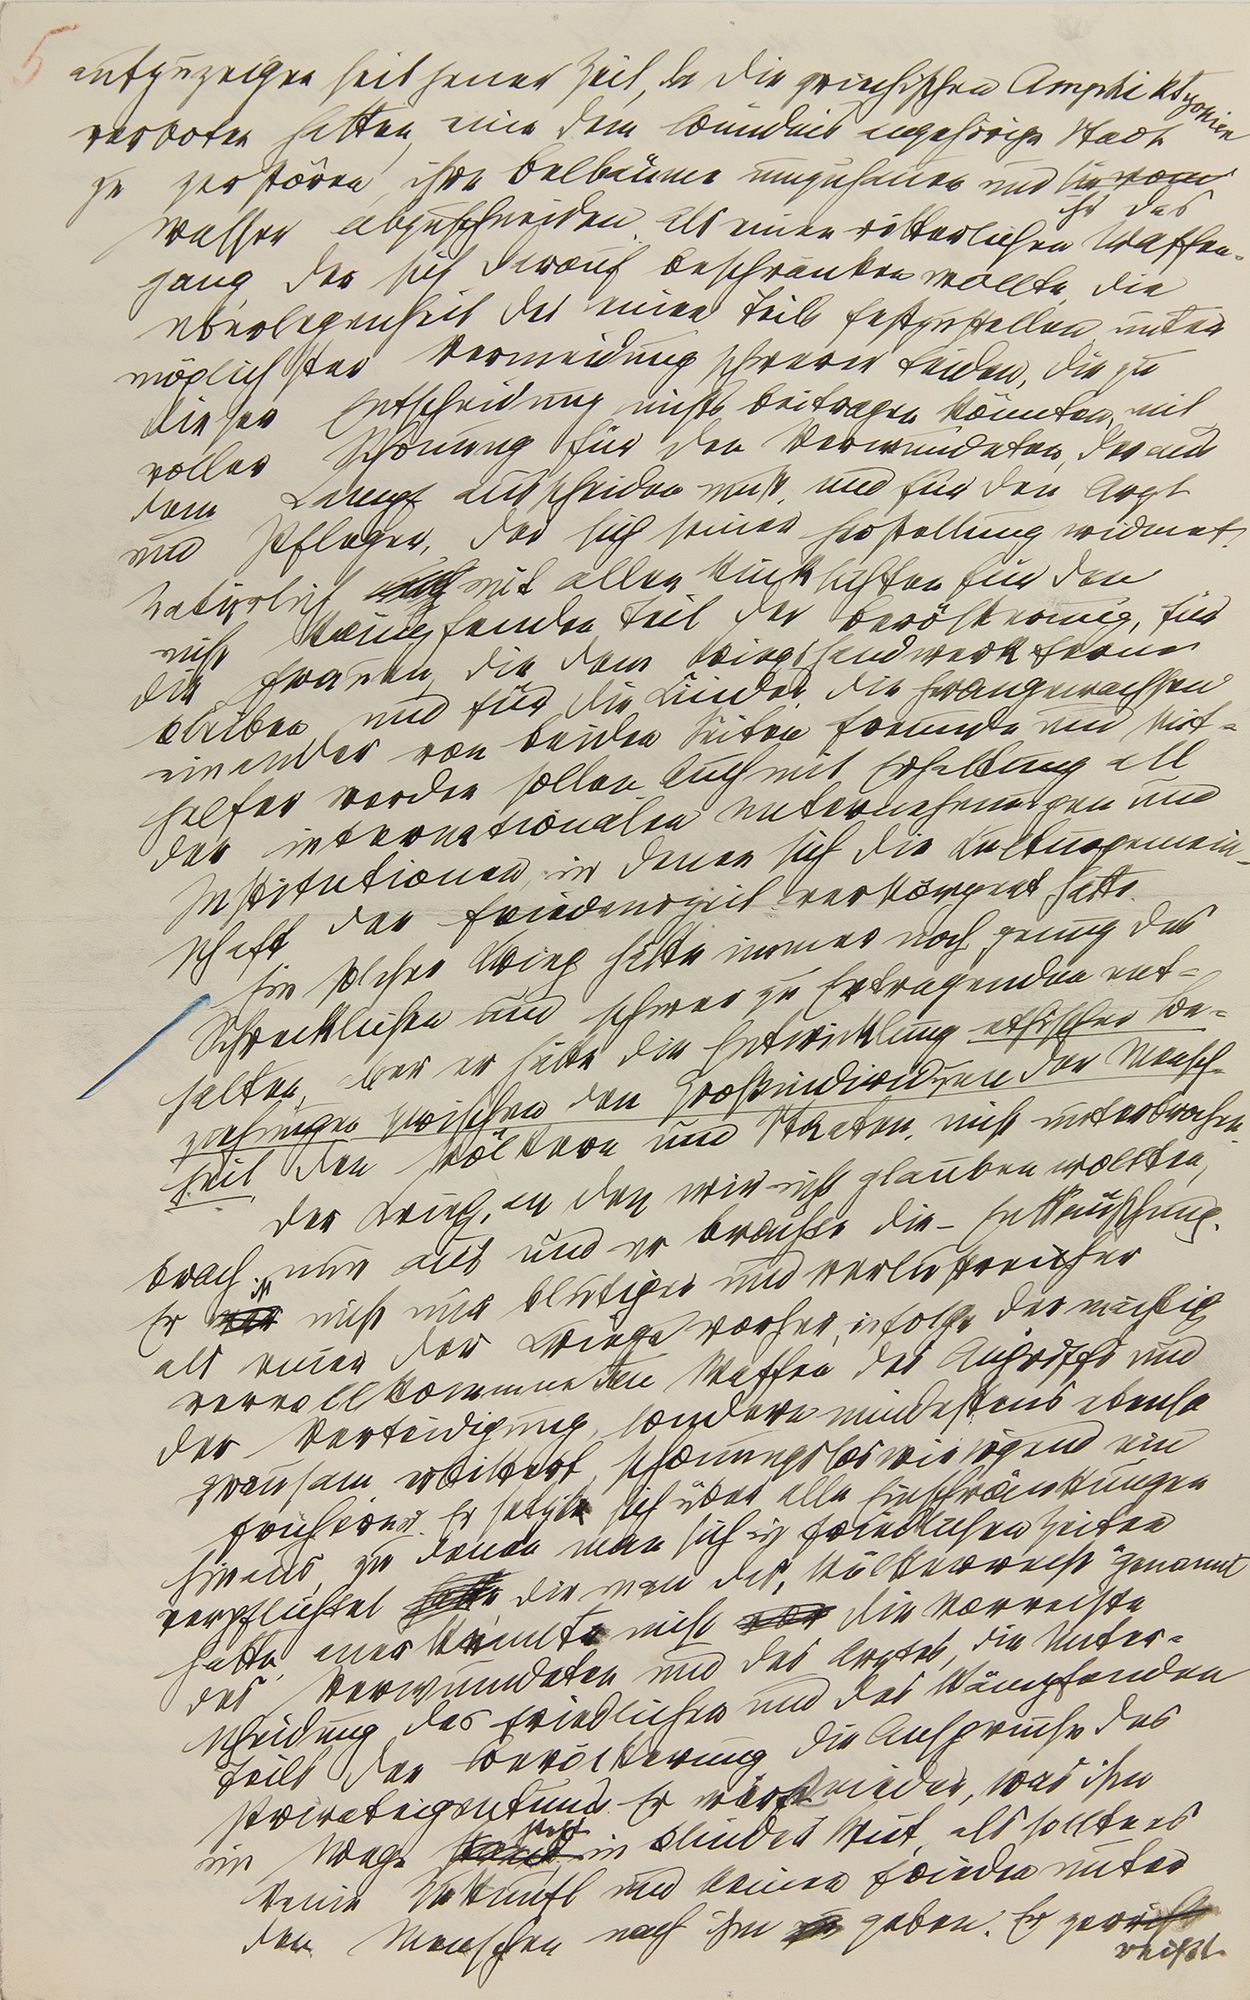 5
aufzuzeigen seit jener Zeit, da die griechischen Amphiktyonien
verboten hatten, eine dem Bündnis angehörige Stadt
zu zerstören, ihre Oelbäume umzuhauen und ihr das
Wasser abzuschneiden. Als einen ritterlichen Waffen-
gang, der sich darauf beschränken wollte, die
Überlegenheit des einen Teils festzustellen, unter
möglichster Vermeidung schwerer Leiden, die zu
dieser Entscheidung nichts beitragen könnten, mit
voller Schonung für den Verwundeten, der aus
dem Kampf ausscheiden muß, und für den Arzt
und Pfleger, der sich seiner Herstellung widmet.
Natürlich mit allen Rücksichten für den
nicht kämpfenden Teil der Bevölkerung, für
die Frauen, die dem Kriegshandwerk ferne
bleiben, und für die Kinder, die herangewachsen
einander von beiden Seiten Freunde und Mit-
helfer werden sollen. Auch mit Erhaltung all
der internationalen Unternehmungen und
Institutionen, in denen sich die Kulturgemein-
schaft der Friedenszeit verkörpert hatte.
Ein solcher Krieg hätte immer noch genug des
Schrecklichen und schwer zu Ertragenden ent-
halten, aber er hätte die Entwicklung ethischer Be-
ziehungen zwischen den Großindividuen der Mensch-
heit, den Völkern und Staaten, nicht unterbrochen.
Der Krieg, an den wir nicht glauben wollten,
brach nun aus und er brachte die – Enttäuschung.
Er ist nicht nur blutiger und verlustreicher
als einer der Kriege vorher, infolge der mächtig
vervollkommneten Waffen des Angriffs und
der Verteidigung, sondern mindestens ebenso
grausam, erbittert, schonungslos wie irgend ein
früherer. Er setzte sich über alle Einschränkungen
hinaus, zu denen man sich in friedlichen Zeiten
verpflichtet, die man das „Völkerrecht“ genannt
hatte, anerkannte nicht die Vorrechte
des Verwundeten und des Arztes, die Unter-
scheidung des friedlichen und des kämpfenden
Teils der Bevölkerung, die Ansprüche des
Privateigentums. Er wirft nieder, was ihm
im Wege steht, in blinder Wut, als sollte es
keine Zukunft und keinen Frieden unter
den Menschen nach ihm geben. Er zerreißt